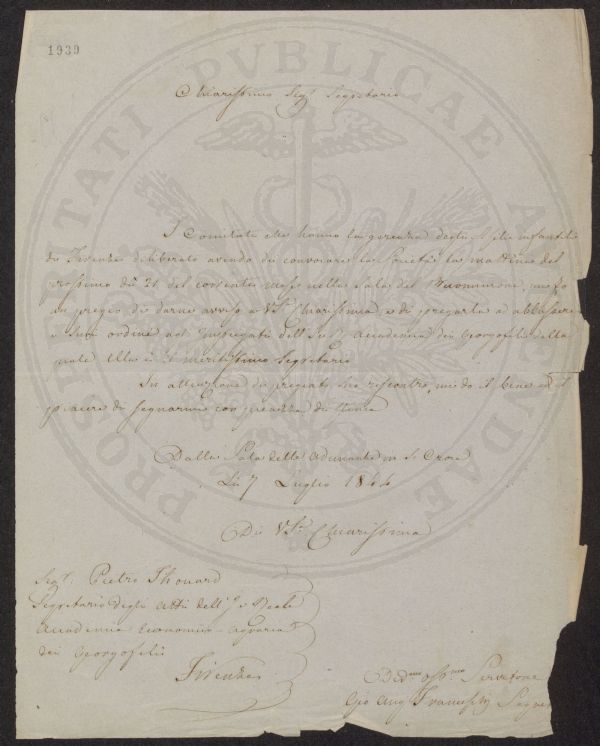 1939
PROSPERITATI PVBLICAE AVGENDAE
Chiarissimo Sig.r Segretario
I Comitati che hanno la gerenza degli Asili infantili
di Firenze deliberato avendo di convocare la Società la mattina del
prossimo dì 21 del corrente mese nella Sala del Buonumore, mi fo
un pregio di darne avviso a VS. Chiarissima, e di pregarla ad abbassare
i suoi ordini agl'Impiegati dell' I. e R. Accademia dei Georgofili della
quale Ella è il meritissimo Segretario
In attenzione di pregiato suo riscontro, mi do il bene ed il
piacere di segnarmi con pienezza di stima
Dalla Sala delle Adunanze in S. Croce
Li 7 Luglio 1844
Di VS. Chiarissima
Sig.r Pietro Thouard
Segretario degli Atti dell' I. e Reale
Accademia Economico-Agraria
dei Georgofili
Firenze
Dev.mo Obb.mo Servitore
Gio Ang Franceschi